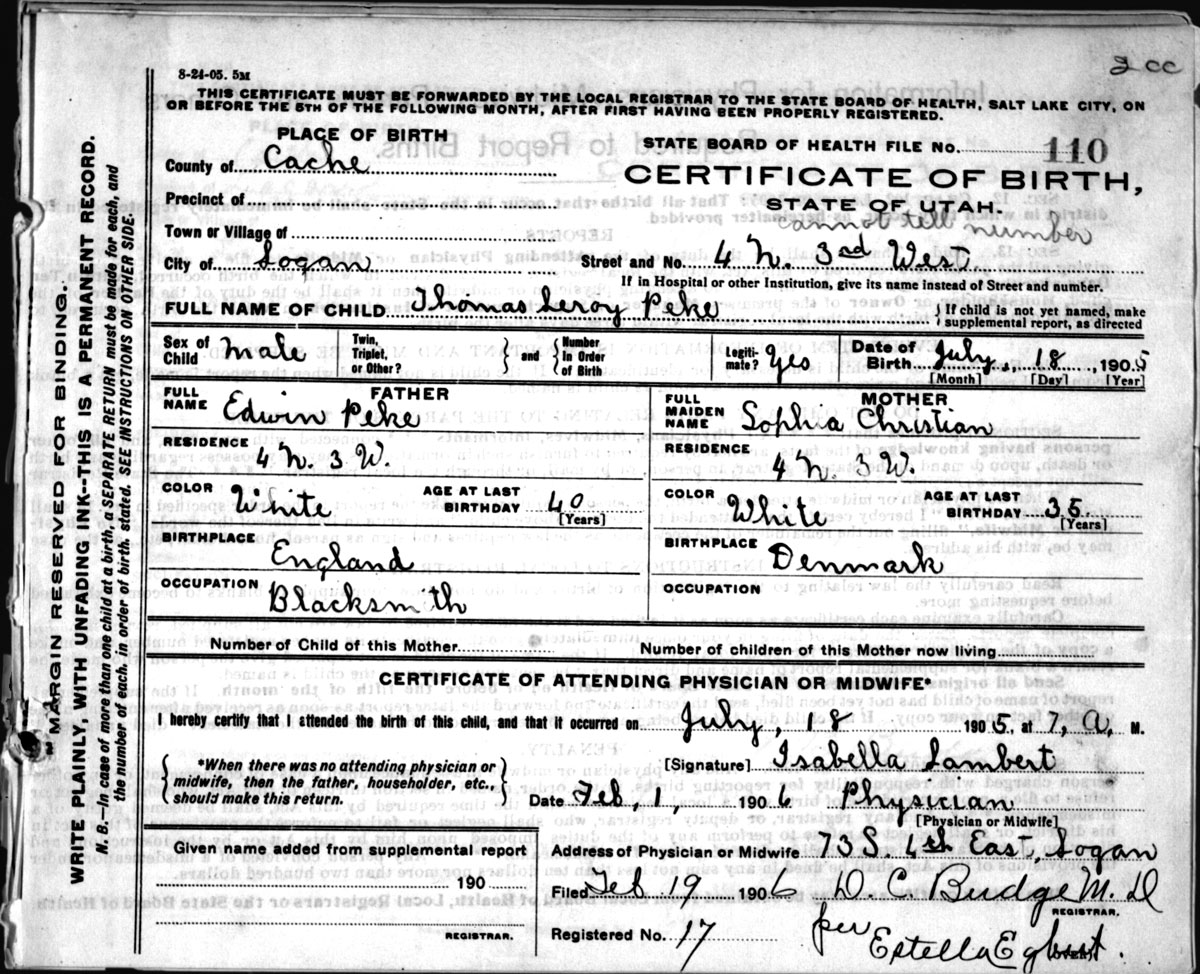 2 cc
8-24-05. 5M
THIS CERTIFICATE MUST BE FORWARDED BY THE LOCAL REGISTRAR TO THE STATE BOARD OF HEALTH, SALT LAKE CITY, ON
OR BEFORE THE 5TH OF THE FOLLOWING MONTH, AFTER FIRST HAVING BEEN PROPERLY REGISTERED.
PLACE OF BIRTH
STATE BOARD OF HEALTH FILE NO. 110
County of Cache
CERTIFICATE OF BIRTH,
Precinct of
STATE OF UTAH.
cannot tell number
Town or Village of
City of Logan
Street and No. 4 N. 3rd West
If in Hospital or other Institution, give its name instead of Street and number.
FULL NAME OF CHILD Thomas Leroy Peke
{ If child is not yet named, make supplemental report, as directed
Sex of Child male Twin, Triplet, or Other? } and { Number In Order of Birth Legitimate? Yes Date of Birth July, 18, 1905
[Month] [Day] [Year]
FATHER
FULL NAME Edwin Peke
RESIDENCE 4 N. 3 W.
COLOR White AGE AT LAST BIRTHDAY 40 [Years]
BIRTHPLACE England
OCCUPATION Blacksmith
MOTHER
FULL MAIDEN NAME Sophia Christian
RESIDENCE 4 N. 3 W.
COLOR White AGE AT LAST BIRTHDAY 35 [Years]
BIRTHPLACE Denmark
OCCUPATION
Number of Child of this Mother
Number of children of this Mother now living
CERTIFICATE OF ATTENDING PHYSICIAN OR MIDWIFE*
I hereby certify that I attended the birth of this child, and that it occurred on July, 18 1905, at 7, a, M.
{ *When there was no attending physician or midwife, then the father, householder, etc., should make this return. }
[Signature] Isabella Lambert
Date Feb, 1, 1906 Physician
[Physician or Midwife]
Given name added from supplemental report
190
REGISTRAR.
Address of Physician or Midwife 73 S. 4th East, Logan
Filed Feb 19 1906 D. C. Budge M. D
REGISTRAR.
Registered No. 17
per Estella Egbert.
"MARGIN RESERVED FOR BINDING."
WRITE PLAINLY, WITH UNFADING INK--THIS IS A PERMANENT RECORD.
N. B.—In case of more than one child at a birth, a SEPARATE RETURN must be made for each, and
the number of each, in order of birth stated. SEE INSTRUCTIONS ON OTHER SIDE.